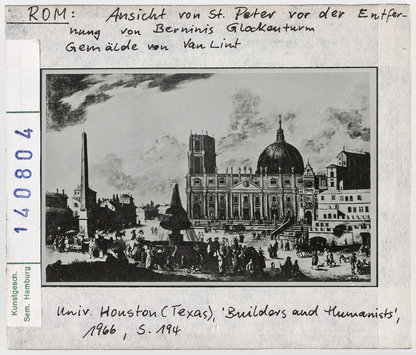 ROM: Ansicht von St. Peter vor der Entfer-
nung von Berninis Glockenturm
Gemälde von Van Lint
140804
Kunstgesch.
Sem. Hamburg
Univ. Houston (Texas), 'Builders and Humanists',
1966, S. 194